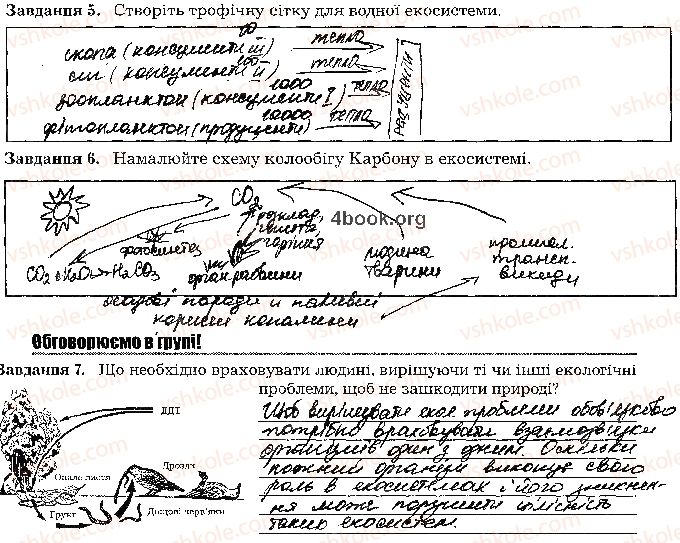 Завдання 5. Створіть трофічну сітку для водної екосистеми.
10
скопа (консументи III) тепло
100
сиг (консументи II) тепло
1000
зоопланктон (консументи I) тепло
10000
фітопланктон (продуценти) тепло
редуценти
Завдання 6. Намалюйте схему колообігу Карбону в екосистемі.
CO2
розклад,
горіння
4book.org
фотосинтез
людина
тварини
промисл.
трансп.
викиди
осадові породи и паливні
корисні копалини
Обговорюємо в групі!
Завдання 7. Що необхідно враховувати людині, вирішуючи ті чи інші екологічні
проблеми, щоб не зашкодити природі?
ДДТ
Опале листя
Дрозди
Ґрунт
Дощові черв'яки
Щоб вирішувати екол проблеми обов'язково
потрібно враховувати взаємозв'язки
організмів один з одним. Оскільки
кожний організм виконує свою
роль в екосистемах і його зникнен-
ня може порушити цілісність
такої екосистем.
vshkole.com